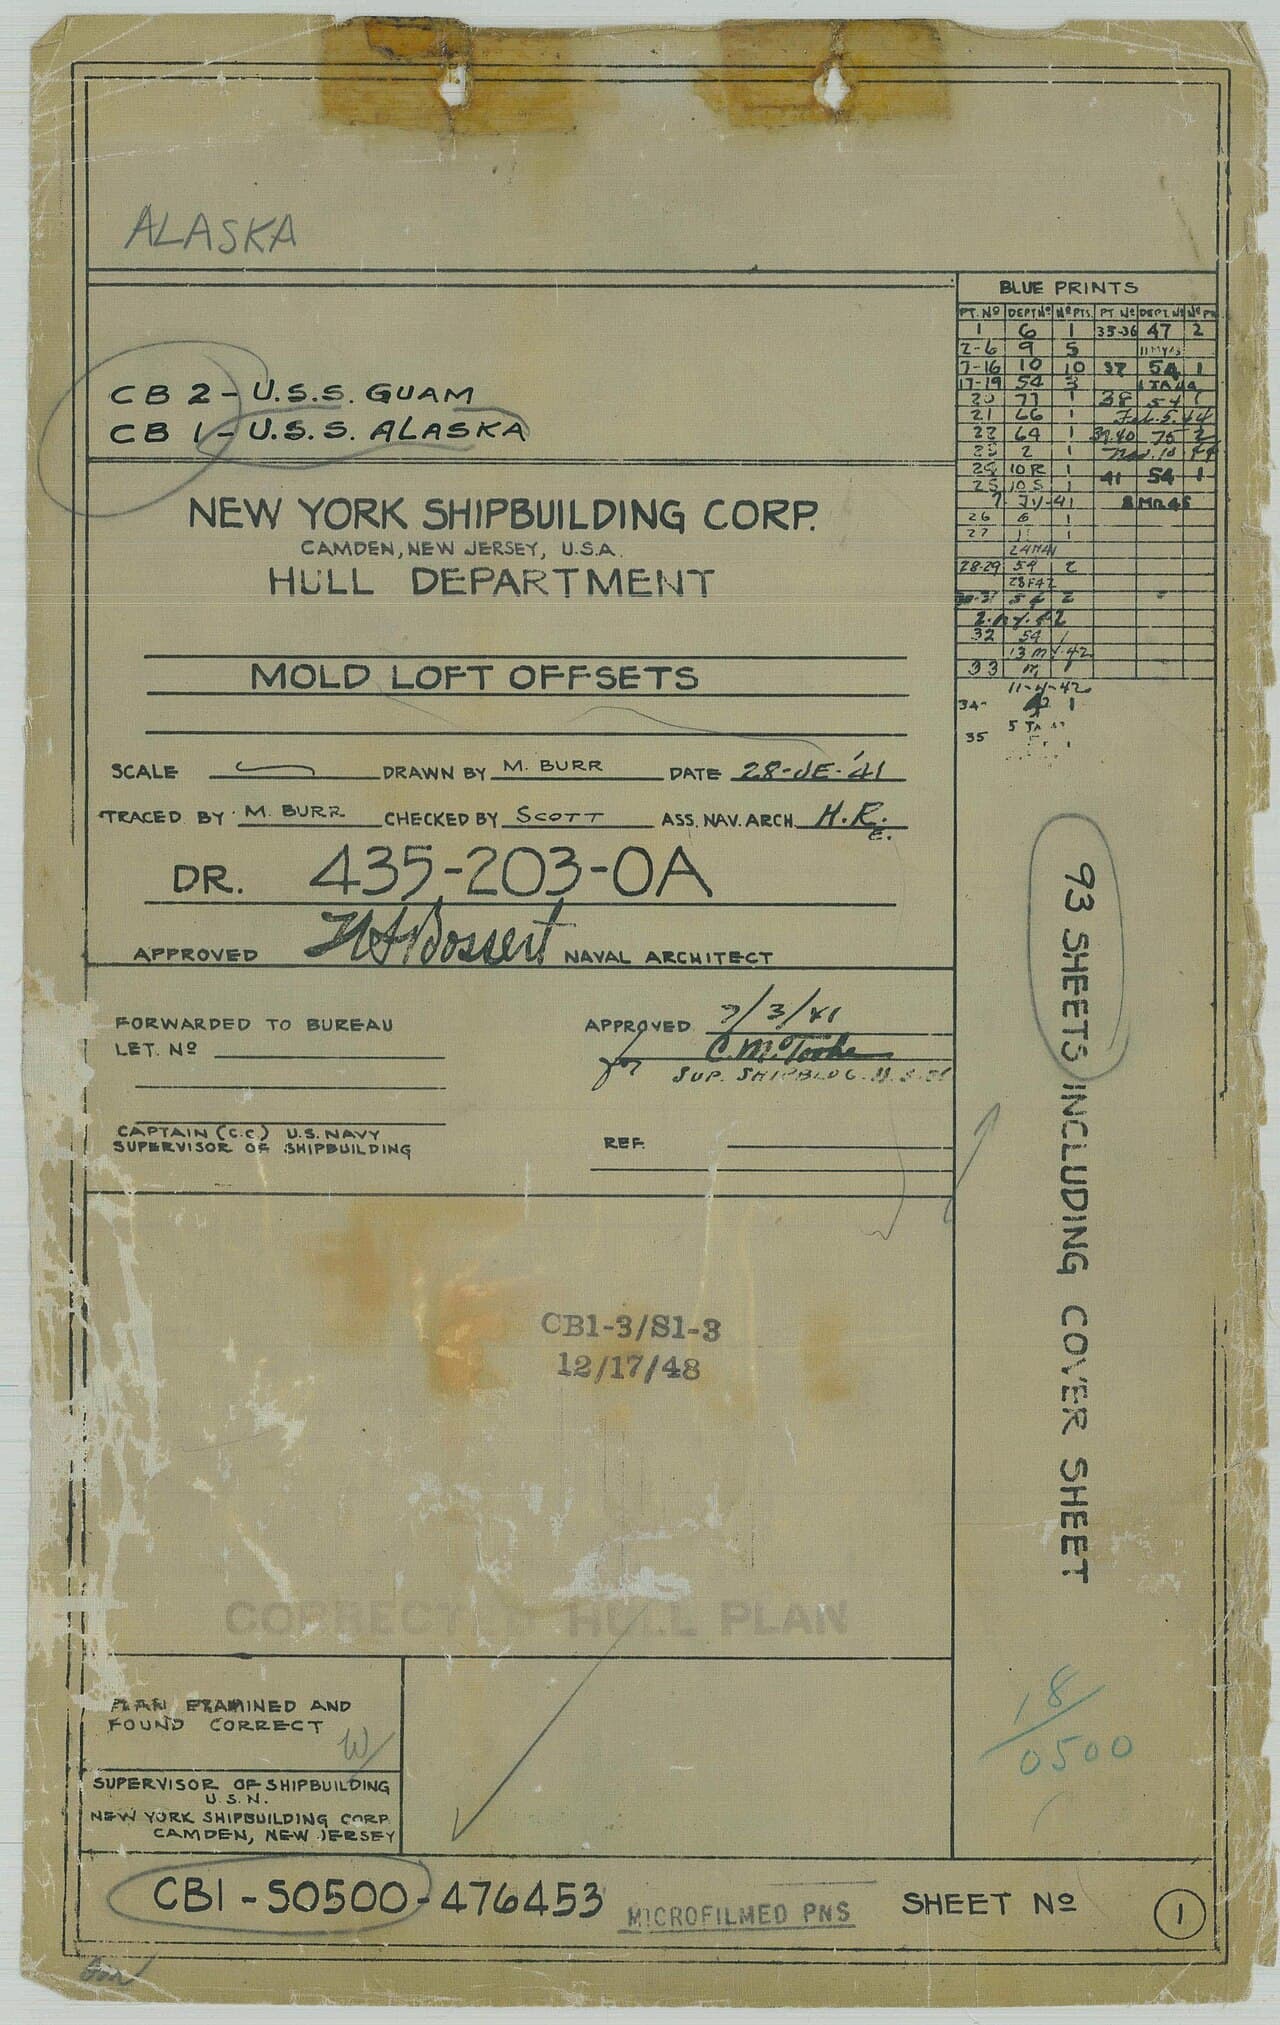 ALASKA
CB 2 - U.S.S. GUAM
CB 1 - U.S.S. ALASKA
NEW YORK SHIPBUILDING CORP.
CAMDEN, NEW JERSEY, U.S.A.
HULL DEPARTMENT
MOLD LOFT OFFSETS
SCALE DRAWN BY M. BURR DATE 28-JE-'41
TRACED BY M. BURR CHECKED BY SCOTT ASS. NAV. ARCH. H.R.E.
DR. 435-203-0A
APPROVED Bossert NAVAL ARCHITECT
FORWARDED TO BUREAU
LET. Nº
APPROVED 7/3/41
for C. M. Tooke
SUP. SHIPBLDG. U.S.N.
CAPTAIN (C.C.) U.S. NAVY
SUPERVISOR OF SHIPBUILDING
REF.
CB1-3/S1-3
12/17/48
CORRECTED HULL PLAN
PLAN EXAMINED AND
FOUND CORRECT
SUPERVISOR OF SHIPBUILDING
U.S.N.
NEW YORK SHIPBUILDING CORP.
CAMDEN, NEW JERSEY
CB1-S0500-476453
MICROFILMED PNS
SHEET Nº 1
BLUE PRINTS
PT. Nº DEPT Nº Nº PTS. PT. Nº DEPT. Nº Nº PTS
1 6 1 35-36 47 2
2-6 9 5
7-16 10 10 37 54 1
17-19 54 3
20 77 1 38 54 1
21 66 1 Feb. 5. 44
22 64 1 39.40 75 2
23 2 1 Nov. 10 44
24 10 R 1 41 54 1
25 10 S 1
7 JY-41 8 MR 45
26 6 1
27 1
28-29 54 2
28 F 42
30-31 54 2
2-MY-42
32 54 1
13 MY-42
33 1
11-4-42
34- 1
35
93 SHEETS INCLUDING COVER SHEET
18/0500